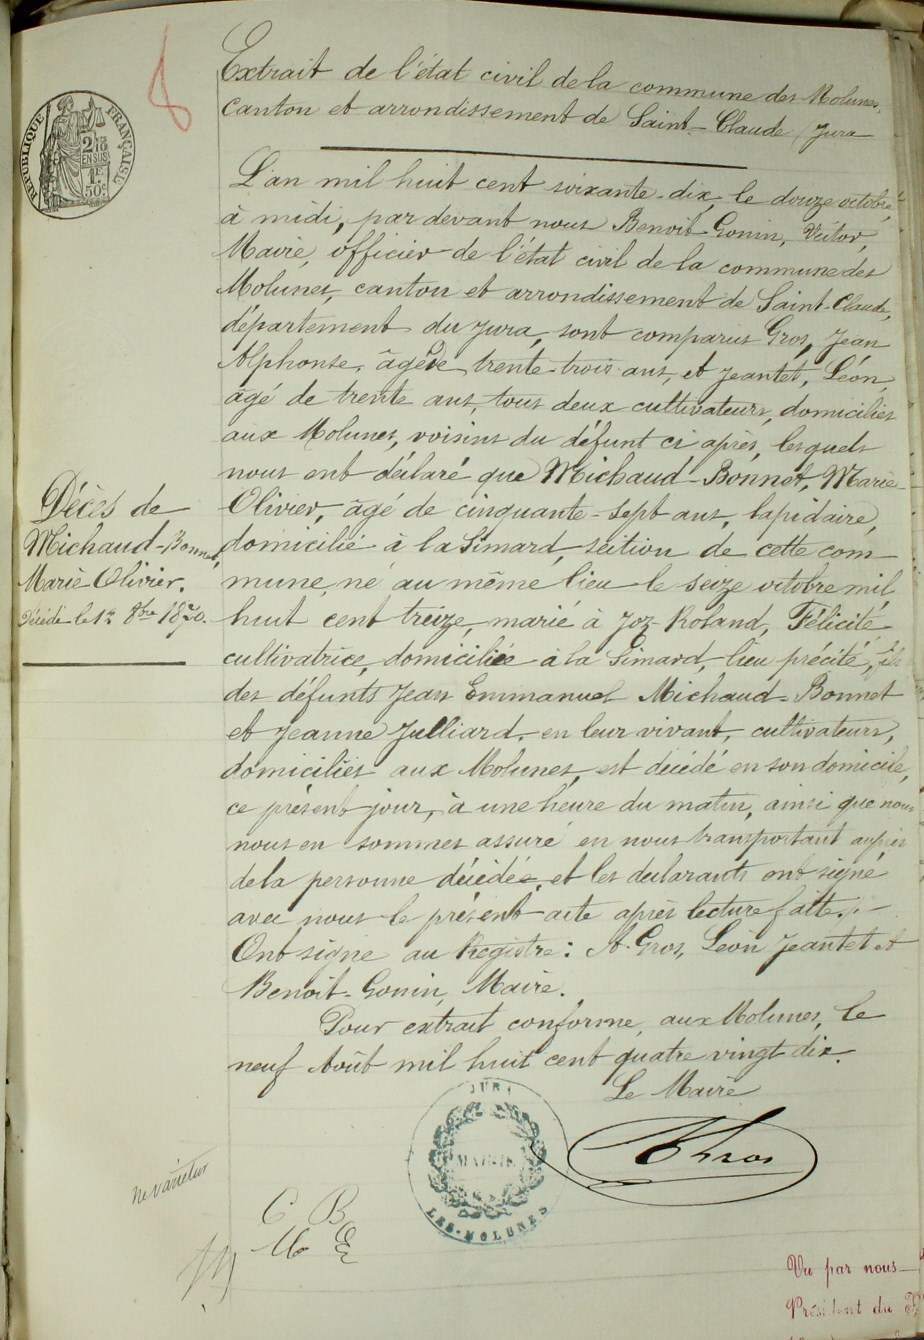 8
RÉPUBLIQUE FRANÇAISE
2/10 EN SUS
1F 50c
Extrait de l'état civil de la commune des Molunes,
canton et arrondissement de Saint-Claude (Jura
L'an mil huit cent soixante-dix, le douze octobre,
à midi, par devant nous Benoit-Gonin, Victor,
Maire, officier de l'état civil de la commune des
Molunes, canton et arrondissement de Saint-Claude,
département du Jura, sont comparus Gros, Jean
Alphonse, âgé de trente-trois ans, et Jeantet, Léon,
âgé de trente ans, tous deux cultivateurs, domiciliés
aux Molunes, voisins du défunt ci après, lesquels
nous ont déclaré que Michaud-Bonnet, Marie-
Olivier, âgé de cinquante-sept ans, lapidaire,
domicilié à la Simard, section de cette com-
mune, né au même lieu le seize octobre mil
huit cent treize, marié à Joz Roland, Félicité,
cultivatrice, domiciliée à la Simard, lieu précité, fils
des défunts Jean Emmanuel Michaud-Bonnet
et Jeanne Julliard, en leur vivant, cultivateurs,
domiciliés aux Molunes, est décédé en son domicile,
ce présent jour, à une heure du matin, ainsi que nous
nous en sommes assuré en nous transportant auprès
de la personne décédée, et les déclarants ont signé
avec nous le présent acte après lecture faite.-
Ont signé au Registre: A. Gros, Léon Jeantet et
Benoit-Gonin, Maire.
Pour extrait conforme, aux Molunes, le
neuf Août mil huit cent quatre vingt dix.
Le Maire
Décès de
Michaud-Bonnet,
Marie Olivier.
Décédé le 12 8bre 1870.
JURA
MAIRIE
LES-MOLUNES
ne varietur
C B
M E
Vu par nous
Président du